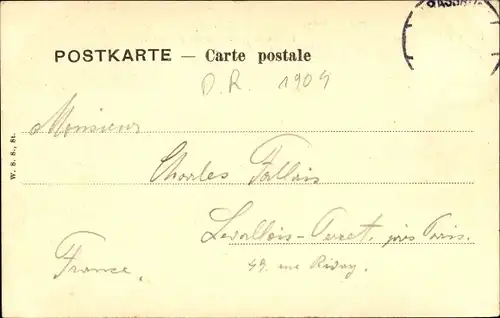 POSTKARTE — Carte postale
D. R. 1904
Monsieur
Charles Fallais
Levallois-Perret, près Paris.
49. rue Rivay.
France.
W. S. S., St.